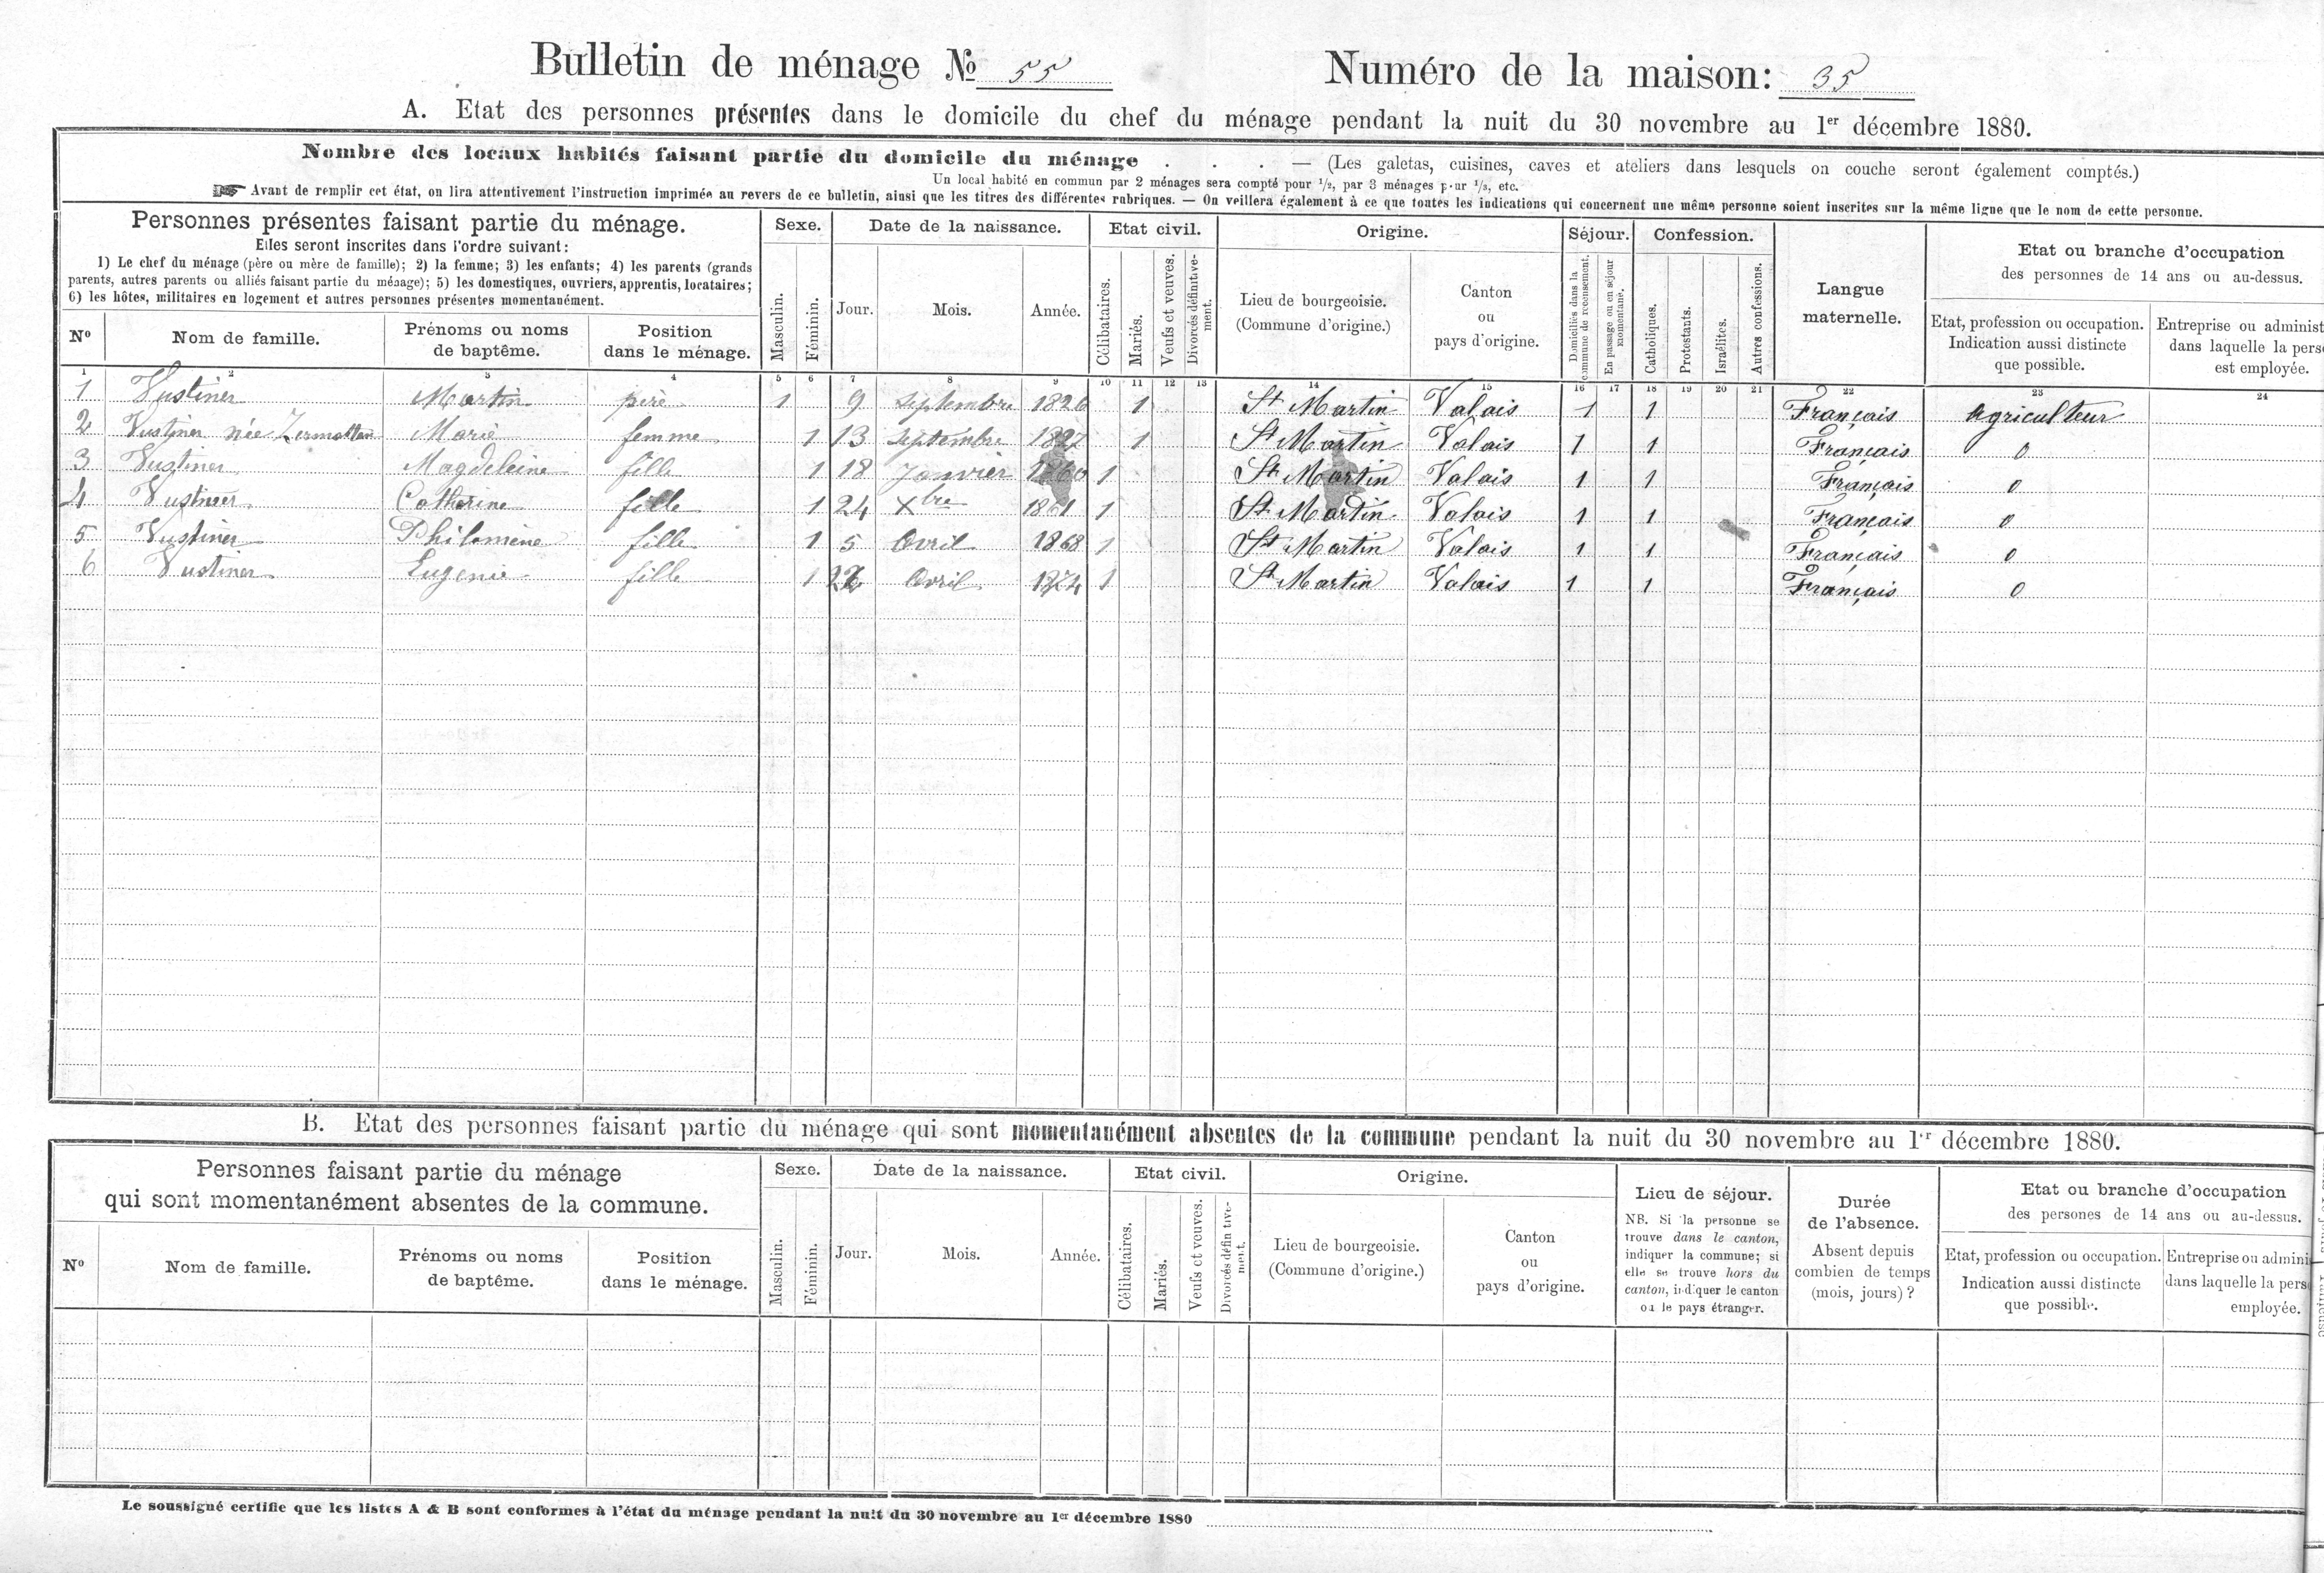 Bulletin de ménage № 55 Numéro de la maison: 35
A. Etat des personnes présentes dans le domicile du chef du ménage pendant la nuit du 30 novembre au 1er décembre 1880.
Nombre des locaux habités faisant partie du domicile du ménage . . . — (Les galetas, cuisines, caves et ateliers dans lesquels on couche seront également comptés.)
Un local habité en commun par 2 ménages sera compté pour 1/2, par 3 ménages pour 1/3, etc.
☞ Avant de remplir cet état, on lira attentivement l'instruction imprimée au revers de ce bulletin, ainsi que les titres des différentes rubriques. — On veillera également à ce que toutes les indications qui concernent une même personne soient inscrites sur la même ligne que le nom de cette personne.
Personnes présentes faisant partie du ménage. Sexe. Date de la naissance. Etat civil. Origine. Séjour. Confession. Langue maternelle. Etat ou branche d'occupation
des personnes de 14 ans ou au-dessus.
Elles seront inscrites dans l'ordre suivant:
1) Le chef du ménage (père ou mère de famille); 2) la femme; 3) les enfants; 4) les parents (grands
parents, autres parents ou alliés faisant partie du ménage); 5) les domestiques, ouvriers, apprentis, locataires;
6) les hôtes, militaires en logement et autres personnes présentes momentanément.
Nº Nom de famille. Prénoms ou noms de baptême. Position dans le ménage. Masculin. Féminin. Jour. Mois. Année. Célibataires. Mariés. Veufs et veuves. Divorcés définitivement. Lieu de bourgeoisie. (Commune d'origine.) Canton ou pays d'origine. Domiciliés dans la commune de recensement. En passage ou en séjour momentané. Catholiques. Protestants. Israélites. Autres confessions. Etat, profession ou occupation. Indication aussi distincte que possible. Entreprise ou administ dans laquelle la pers est employée.
1 2 3 4 5 6 7 8 9 10 11 12 13 14 15 16 17 18 19 20 21 22 23 24
1 Vustiner Martin père 1 9 septembre 1826 1 St Martin Valais 1 1 Français agriculteur
2 Vustiner née Zermatten Marie femme 1 13 septembre 1827 1 St Martin Valais 1 1 Français 0
3 Vustiner Magdeleine fille 1 18 Janvier 1860 1 St Martin Valais 1 1 Français 0
4 Vustiner Catherine fille 1 24 Xbre 1861 1 St Martin Valais 1 1 Français 0
5 Vustiner Philomène fille 1 5 Avril 1868 1 St Martin Valais 1 1 Français 0
6 Vustiner Eugenie fille 1 Avril 1874 1 St Martin Valais 1 1 Français 0
B. Etat des personnes faisant partie du ménage qui sont momentanément absentes de la commune pendant la nuit du 30 novembre au 1er décembre 1880.
Personnes faisant partie du ménage
qui sont momentanément absentes de la commune.
Sexe. Date de la naissance. Etat civil. Origine. Lieu de séjour. Durée de l'absence. Etat ou branche d'occupation
des persones de 14 ans ou au-dessus.
Nº Nom de famille. Prénoms ou noms de baptême. Position dans le ménage. Masculin. Féminin. Jour. Mois. Année. Célibataires. Mariés. Veufs et veuves. Divorcés définitivement. Lieu de bourgeoisie. (Commune d'origine.) Canton ou pays d'origine.
NB. Si la personne se
trouve dans le canton,
indiquer la commune; si
elle se trouve hors du
canton, indiquer le canton
ou le pays étranger.
Absent depuis
combien de temps
(mois, jours)?
Etat, profession ou occupation. Indication aussi distincte que possible. Entreprise ou admini dans laquelle la pers employée.
Le soussigné certifie que les listes A & B sont conformes à l'état du ménage pendant la nuit du 30 novembre au 1er décembre 1880